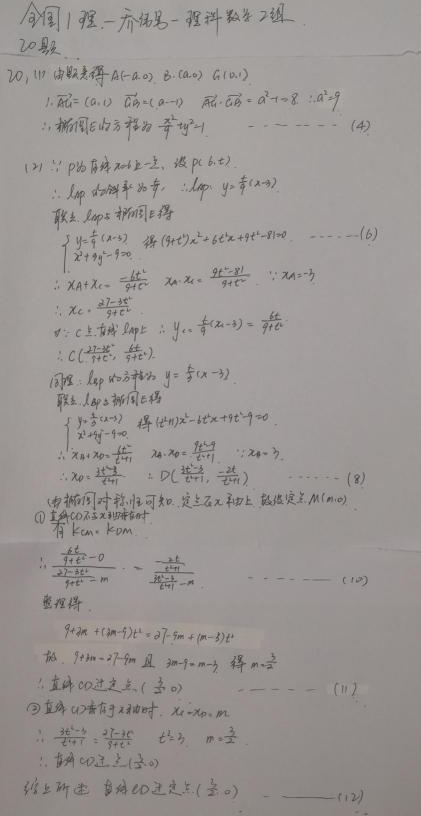 全国1理-乔伟男-理科数学2组
20题
20, (1) 由题意得 A(-a,0) B(a,0) G(0,1)
∴ AG=(a,1) GB=(a,-1) AG·GB=a²-1=8 ∴a²=9
∴椭圆E的方程为 x²/9+y²=1 ------- (4)
(2) ∵ P为直线x=6上一点, 设P(6,t)
∴ lAP的斜率为 t/9, ∴lAP: y=t/9(x-3)
联立 lAP与椭圆E得
{ y=t/9(x-3) 得 (9+t²)x²+6t²x+9t²-81=0 ------(6)
x²+9y²-9=0
∴ xA+xC=-6t²/9+t² xA·xC=9t²-81/9+t² ∵xA=-3
∴ xC=27-3t²/9+t²
又∵ C点在直线lAP上 ∴ yC=t/9(xC-3)=6t/9+t²
∴ C(27-3t²/9+t², 6t/9+t²)
同理: lBP的方程为 y=t/3(x-3)
联立 lBP与椭圆E得
{ y=t/3(x-3) 得 (t²+1)x²-6t²x+9t²-9=0
x²+9y²-9=0
∴ xB+xD=6t²/t²+1 xB·xD=9t²-9/t²+1 ∵xB=3
∴ xD=3t²-3/t²+1 ∴ D(3t²-3/t²+1, -2t/t²+1) ------ (8)
由椭圆对称性可知, 定点在x轴上, 故设定点M(m,0)
① 直线CD不与x轴垂直时
有 kCM=kDM
∴ (6t/9+t² -0)/(27-3t²/9+t² -m) = (-2t/t²+1)/(3t²-3/t²+1 -m) ------- (10)
整理得
9+3m+(3m-9)t²=27-9m+(m-3)t²
故 9+3m=27-9m 且 3m-9=m-3 得 m=3/2
∴ 直线CD过定点(3/2,0) ----- (11)
② 直线CD垂直于x轴时, xC=xD=m
∴ 3t²-3/t²+1=27-3t²/9+t² t²=3 m=3/2
∴ 直线CD过点(3/2,0)
综上所述 直线CD过定点(3/2,0) ------ (12)